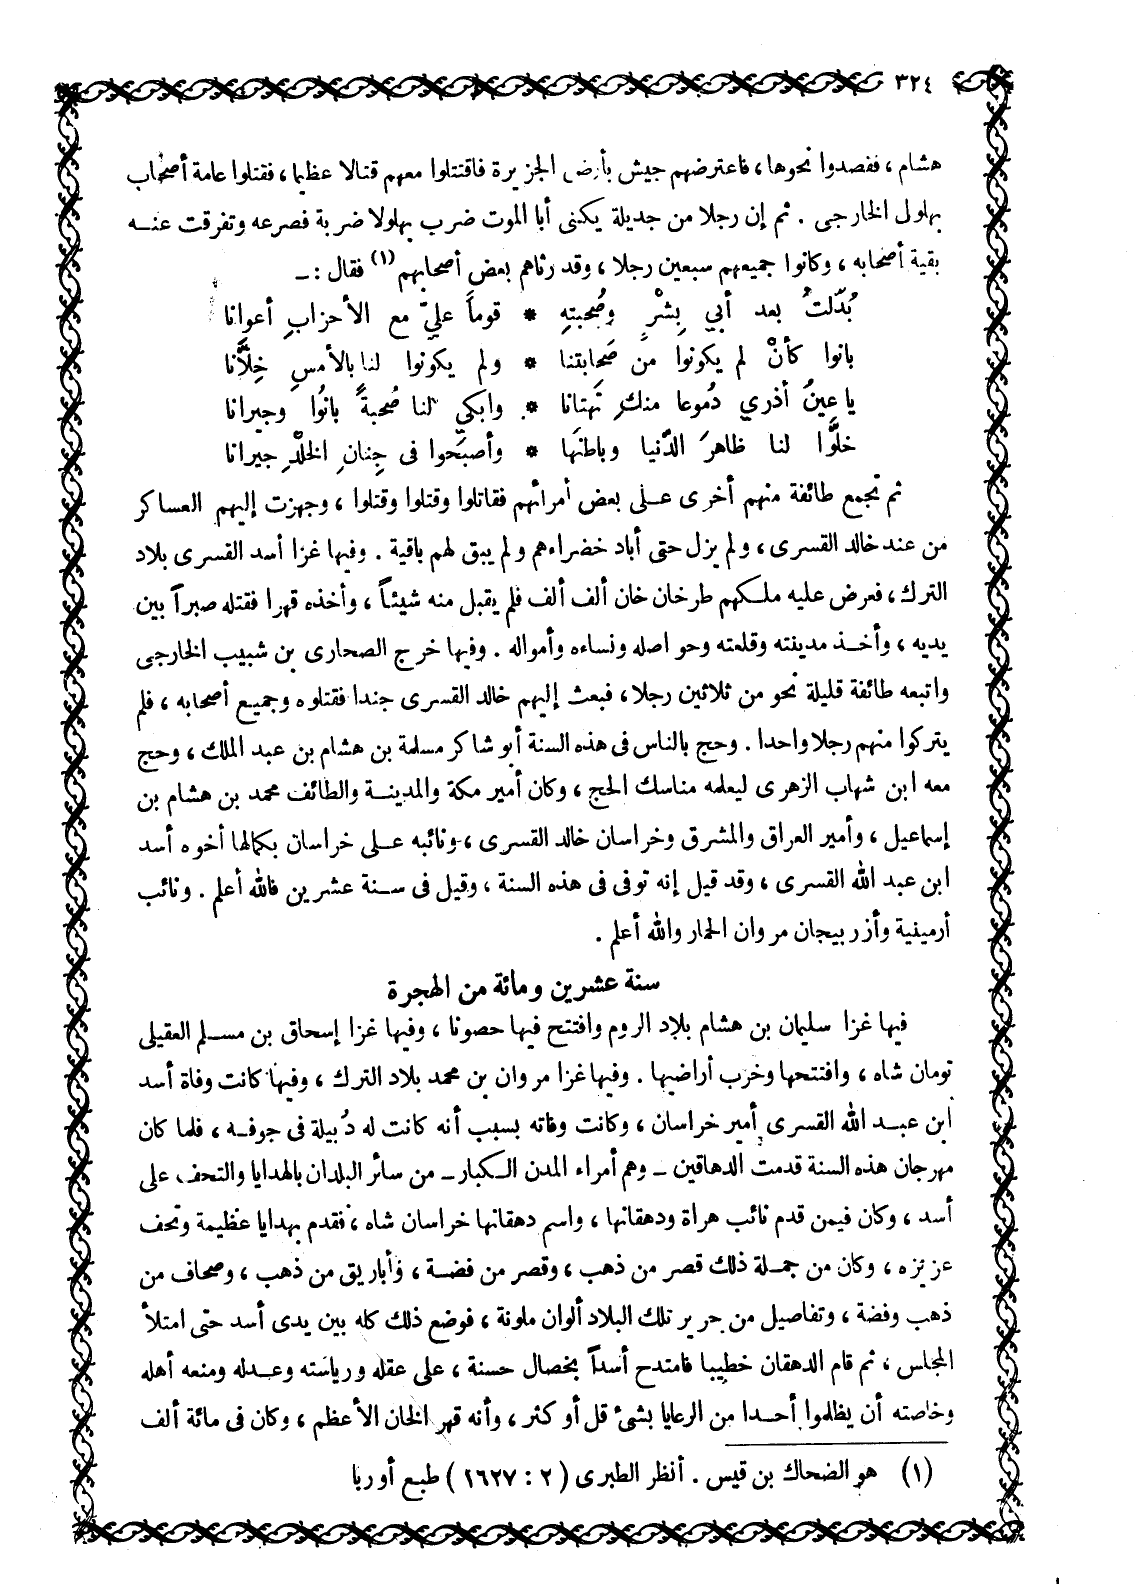 ٣٢٤
هشام ، فقصدوا نحوها ، فاعترضهم جيش بأرض الجزيرة فاقتتلوا معهم قتالا عظيما ، فقتلوا عامة أصحاب
بهلول الخارجى . ثم إن رجلا من جديلة يكنى أبا الموت ضرب بهلولا ضربة فصرعه وتفرقت عنه
بقية أصحابه ، وكانوا جميعهم سبعين رجلا ، وقد رثاهم بعض أصحابهم (١) فقال : ـ
بُدّلتُ بعد أبي بِشْرٍ وصُحبتِهِ * قوماً عليّ مع الأحزابِ أعوانا
بانوا كأنْ لم يكونوا من صَحابتنا * ولم يكونوا لنا بالأمسِ خِلاَّنا
يا عينُ أذري دُموعا منكِ تَهتانا * وابكي لنا صُحبةً بانُوا وجيرانا
خلَّوا لنا ظاهرَ الدّنيا وباطنَها * وأصبَحوا فى جِنانِ الخلْدِ جيرانا
ثم تجمع طائفة منهم أخرى على بعض أمرائهم فقاتلوا وقتلوا وقتلوا ، وجهزت إليهم العساكر
من عند خالد القسرى ، ولم يزل حتى أباد خضراءهم ولم يبق لهم باقية . وفيها غزا أسد القسرى بلاد
الترك ، فعرض عليه ملكهم طرخان خان ألف ألف فلم يقبل منه شيئاً ، وأخذه قهرا فقتله صبراً بين
يديه ، وأخذ مدينته وقلعته وحواصله ونساءه وأمواله . وفيها خرج الصحارى بن شبيب الخارجى
واتبعه طائفة قليلة نحو من ثلاثين رجلا ، فبعث إليهم خالد القسرى جندا فقتلوه وجميع أصحابه ، فلم
يتركوا منهم رجلا واحدا . وحج بالناس فى هذه السنة أبو شاكر مسلمة بن هشام بن عبد الملك ، وحج
معه ابن شهاب الزهرى ليعلمه مناسك الحج ، وكان أمير مكة والمدينة والطائف محمد بن هشام بن
إسماعيل ، وأمير العراق والمشرق وخراسان خالد القسرى ، ونائبه على خراسان بكمالها أخوه أسد
ابن عبد الله القسرى ، وقد قيل إنه توفى فى هذه السنة ، وقيل فى سنة عشرين فالله أعلم . ونائب
أرمينية وأزربيجان مروان الحمار والله أعلم .
سنة عشرين ومائة من الهجرة
فيها غزا سليمان بن هشام بلاد الروم وافتتح فيها حصونا ، وفيها غزا إسحاق بن مسلم العقيلى
تومان شاه ، وافتتحها وخرب أراضيها . وفيها غزا مروان بن محمد بلاد الترك ، وفيها كانت وفاة أسد
ابن عبد الله القسرى أمير خراسان ، وكانت وفاته بسبب أنه كانت له دُبيلة فى جوفه ، فلما كان
مهرجان هذه السنة قدمت الدهاقين ـ وهم أمراء المدن الكبار ـ من سائر البلدان بالهدايا والتحف على
أسد ، وكان فيمن قدم نائب هراة ودهقانها ، واسم دهقانها خراسان شاه ، فقدم بهدايا عظيمة وتحف
عزيزه ، وكان من جملة ذلك قصر من ذهب ، وقصر من فضة ، وأباريق من ذهب ، وصحاف من
ذهب وفضة ، وتفاصيل من حرير تلك البلاد ألوان ملونة ، فوضع ذلك كله بين يدى أسد حتى امتلأ
المجلس ، ثم قام الدهقان خطيبا فامتدح أسداً بخصال حسنة ، على عقله ورياسته وعدله ومنعه أهله
وخاصته أن يظلموا أحدا من الرعايا بشىء قل أو كثر ، وأنه قهر الخان الأعظم ، وكان فى مائة ألف
(١) هو الضحاك بن قيس . أنظر الطبرى ( ٢ : ١٦٢٧ ) طبع أوربا